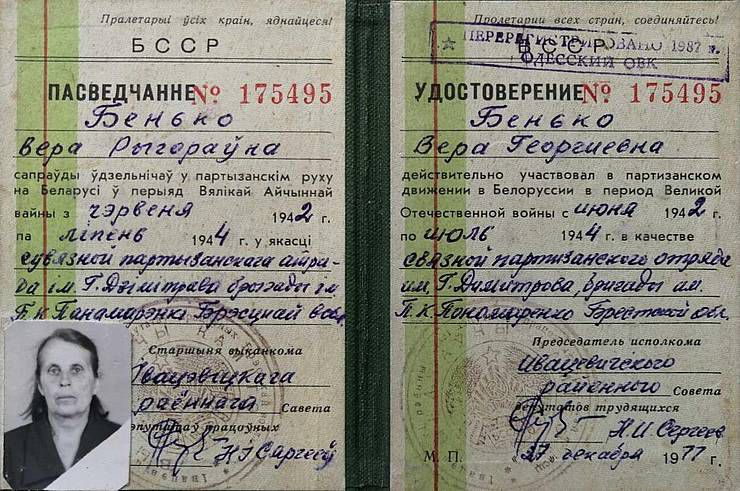 Пралетарыі ўсіх краін, яднайцеся!
БССР
ПАСВЕДЧАННЕ № 175495
Бенько
Вера Рыгораўна
сапраўды ўдзельнічаў у партызанскім руху
на Беларусі ў перыяд Вялікай Айчыннай
вайны з чэрвеня 1942 г.
па ліпень 1944 г. у якасці
сувязной партызанскага атра-
да ім. Г. Дзімітрава брыгады ім.
П.К. Панамарэнкі Брэсцкай вобл.
Старшыня выканкома
Івацэвіцкага
раённага Савета
дэпутатаў працоўных
Н.І. Сяргееў
Пролетарии всех стран, соединяйтесь!
БССР
ПЕРЕРЕГИСТРИРОВАНО 1987 г.
ОДЕССКИЙ ОВК
УДОСТОВЕРЕНИЕ № 175495
Бенько
Вера Георгиевна
действительно участвовал в партизанском
движении в Белоруссии в период Великой
Отечественной войны с июня 1942 г.
по июль 1944 г. в качестве
связной партизанского отряда
им. Г. Димитрова, бригады им.
П.К. Пономаренко Брестской обл.
Председатель исполкома
Ивацевичского
районного Совета
депутатов трудящихся
Н.И. Сергеев
М. П. 27 декабря 1977 г.